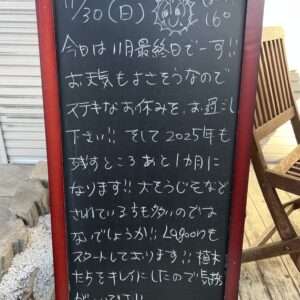 11/30(日) 16°
今日は11月最終日でーす!!
お天気もよさそうなので
ステキなお休みを、お過ごし
下さい!! そして2025年も
残すところあと1カ月に
なります!! 大そうじなど
されている方も多いのでは
ないでしょうか!! Lagoonも
スタートしております!! 植木
たちをキレイにしたので気持